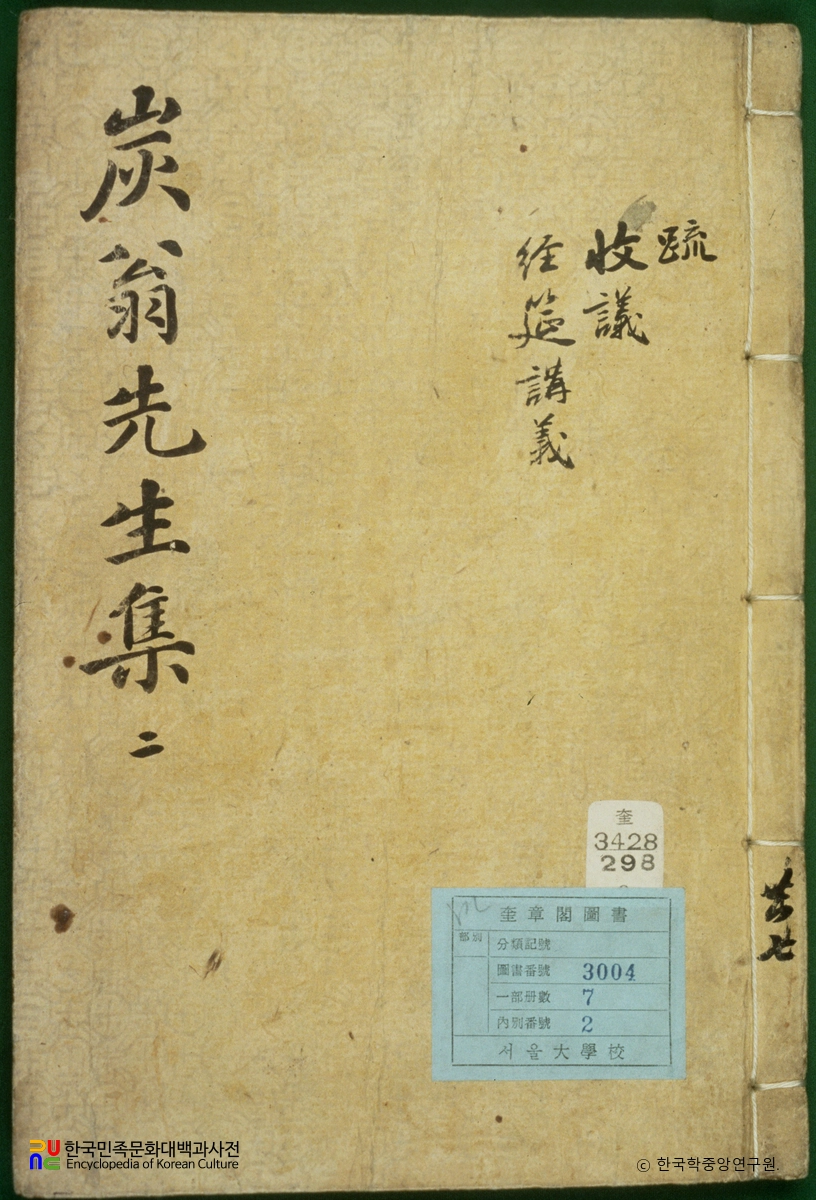 炭翁先生集 二
疏
收議
經筵講義
共七
奎
3428
298
奎章閣圖書
部別
分類記號
圖書番號 3004
一部册數 7
內別番號 2
서울大學校
한국민족문화대백과사전
Encyclopedia of Korean Culture
© 한국학중앙연구원.